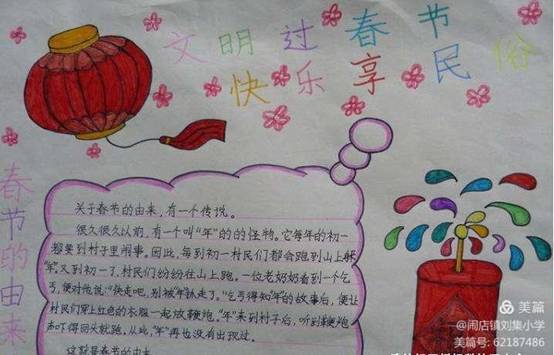 文明过春节
快乐享民俗
春节的由来
关于春节的由来，有一个传说。
很久很久以前，有一个叫“年”的的怪物。它每年的初一
都要到村子里闹事。因此，每到初一村民们都会跑到山上躲
“年”。又到初一了，村民们纷纷往山上跑。一位老奶奶看到一个乞
丐，便对他说：“快走吧，别被“年”抓走了。”乞丐得知“年”的故事后，便让
村民们穿上红色的衣服一起放鞭炮。“年”来到村子后，听到鞭炮
声吓得回头就跑，从此，“年”再也没有出现过。
这就是春节的由来
美篇
@闹店镇刘集小学
美篇号: 62187486